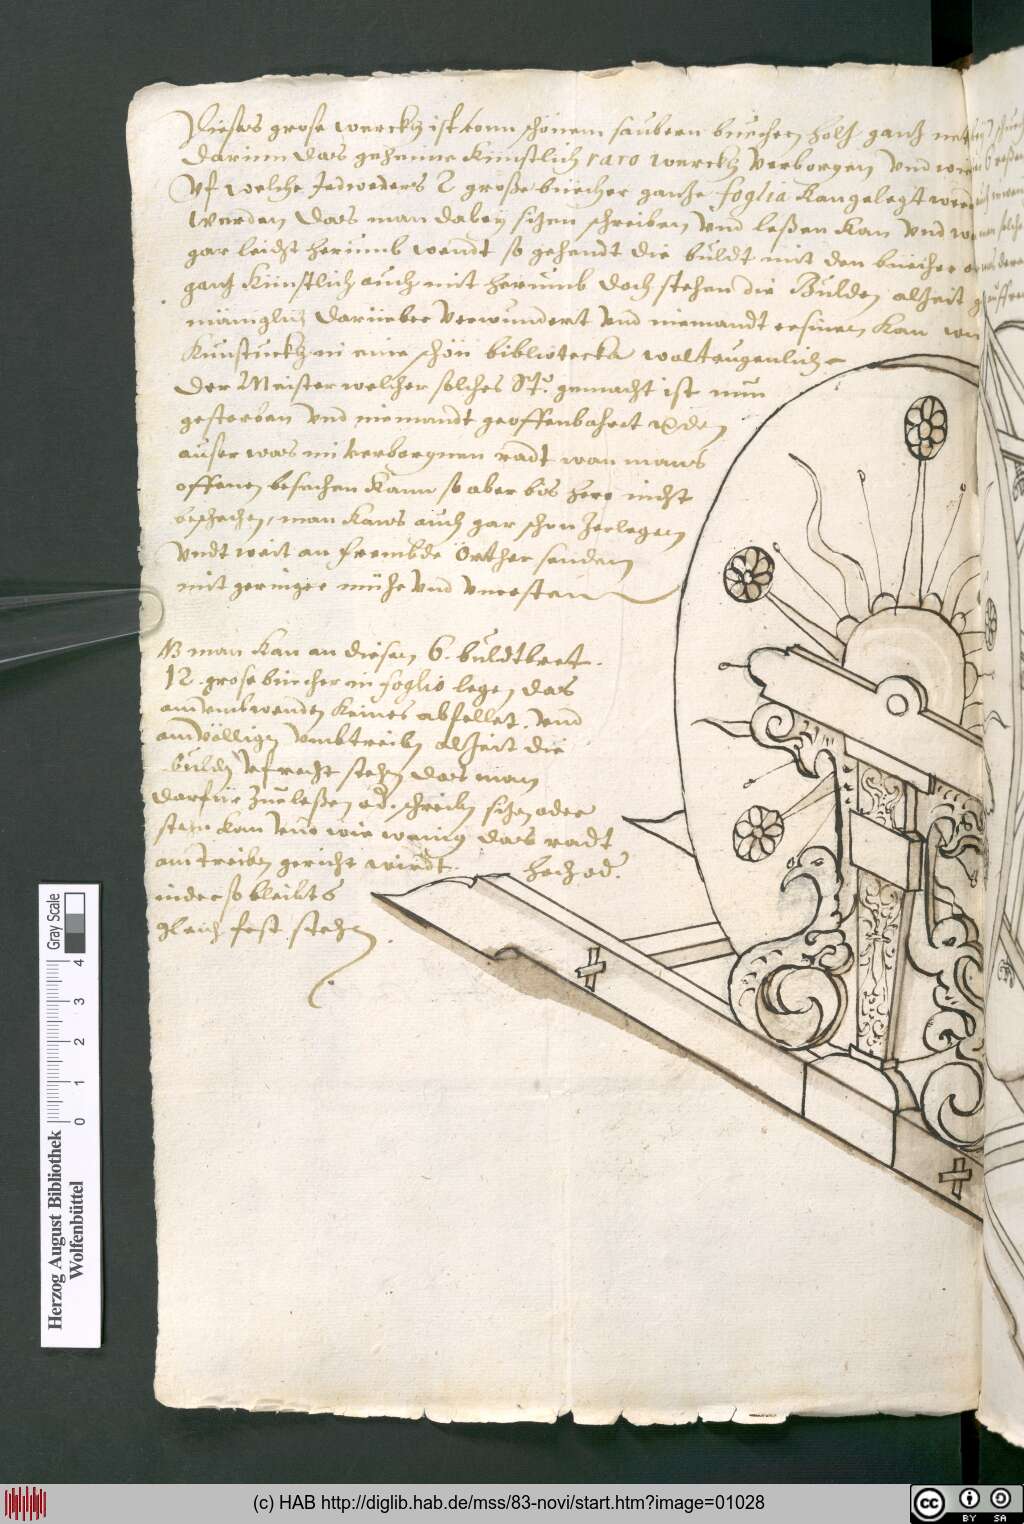 Dieses grose werckh ist vonn schönem saubern buechen holtz gantz
darinn das geheime Künstlich raro werckh verborgen vnd
vf welche Jedweders 2 große büecher gantze foglia Kan gelegt
werden das man dabey sitzen schreiben vnd leßen Kan vnd
gar leicht herumb wendt so gehendt die buldt mit den büecher
gantz Künstlich auch mit herumb doch stehen die Bulden alzeit
mäniglich darüeber verwundert vnd niemandt ersinen Kan
Kunstuckh in eine schön bibliotecka wol taugenlich
der Meister welcher solches St: gemacht ist nun
gestorben vnd niemandt geoffenbahret
auser was im verborgnen radt wan mans
offenen besechen Kann so aber bis hero nicht
beschechen, man Kans auch gar schon zerlegen
vndt weit an frembde Örther senden
mit geringer mühe vnd vncosten
NB man Kan an diesen 6. buldtbret.
12. grose büecher in foglio legen das
am vmbwenden Keines abfellet. vnd
am völligen vmbtreiben alzeit die
bulden vfrecht stehen das man
darfür zue leßen od. schreiben sitzen oder
sten Kan vnd wie wenig das radt
am treiben gericht wirdt. hoch od.
nider so bleibts
gleich fest stehen.
Herzog August Bibliothek
Wolfenbüttel
Gray Scale
0 1 2 3 4
(c) HAB http://diglib.hab.de/mss/83-novi/start.htm?image=01028
cc BY SA